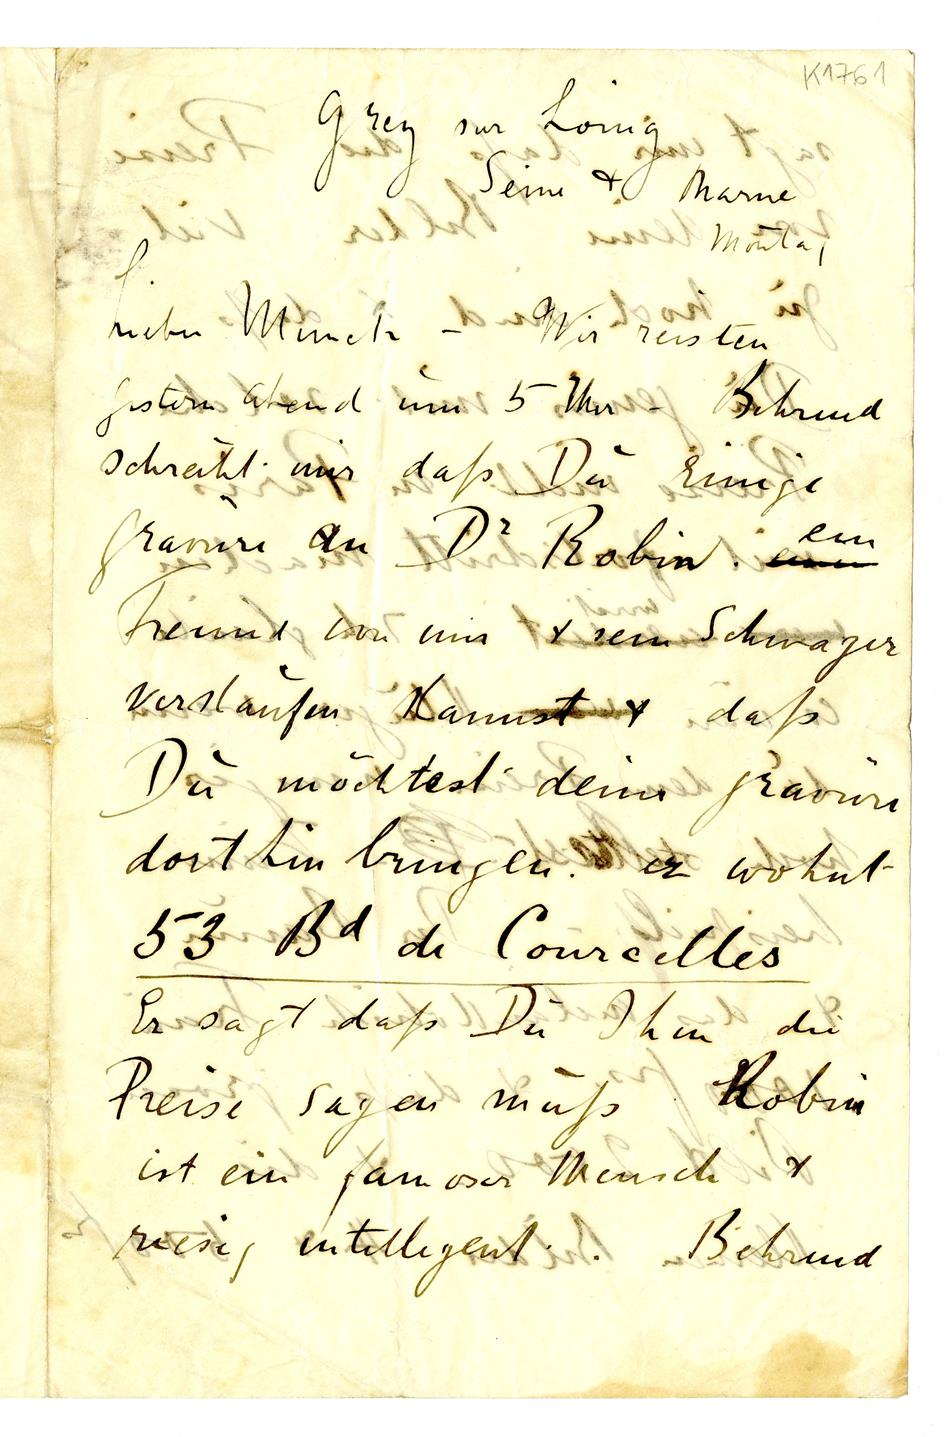 K1761
Grez sur Loing
Seine & Marne
Montag
Lieber Munch – Wir reisten
gestern Abend um 5 Uhr – Behrend
schreibt mir daß Du einige
gravure an Dr Robin. einen ein
Freund von mir & sein Schwager
verkaufen kannst & daß
Du möchtest deine gravüre
dorthin bringen. er wohnt
53 Bd de Courcelles
Er sagt daß Du Ihm die
Preise sagen muß. Robin
ist ein famoser Mensch &
riesig intelligent. Behrend